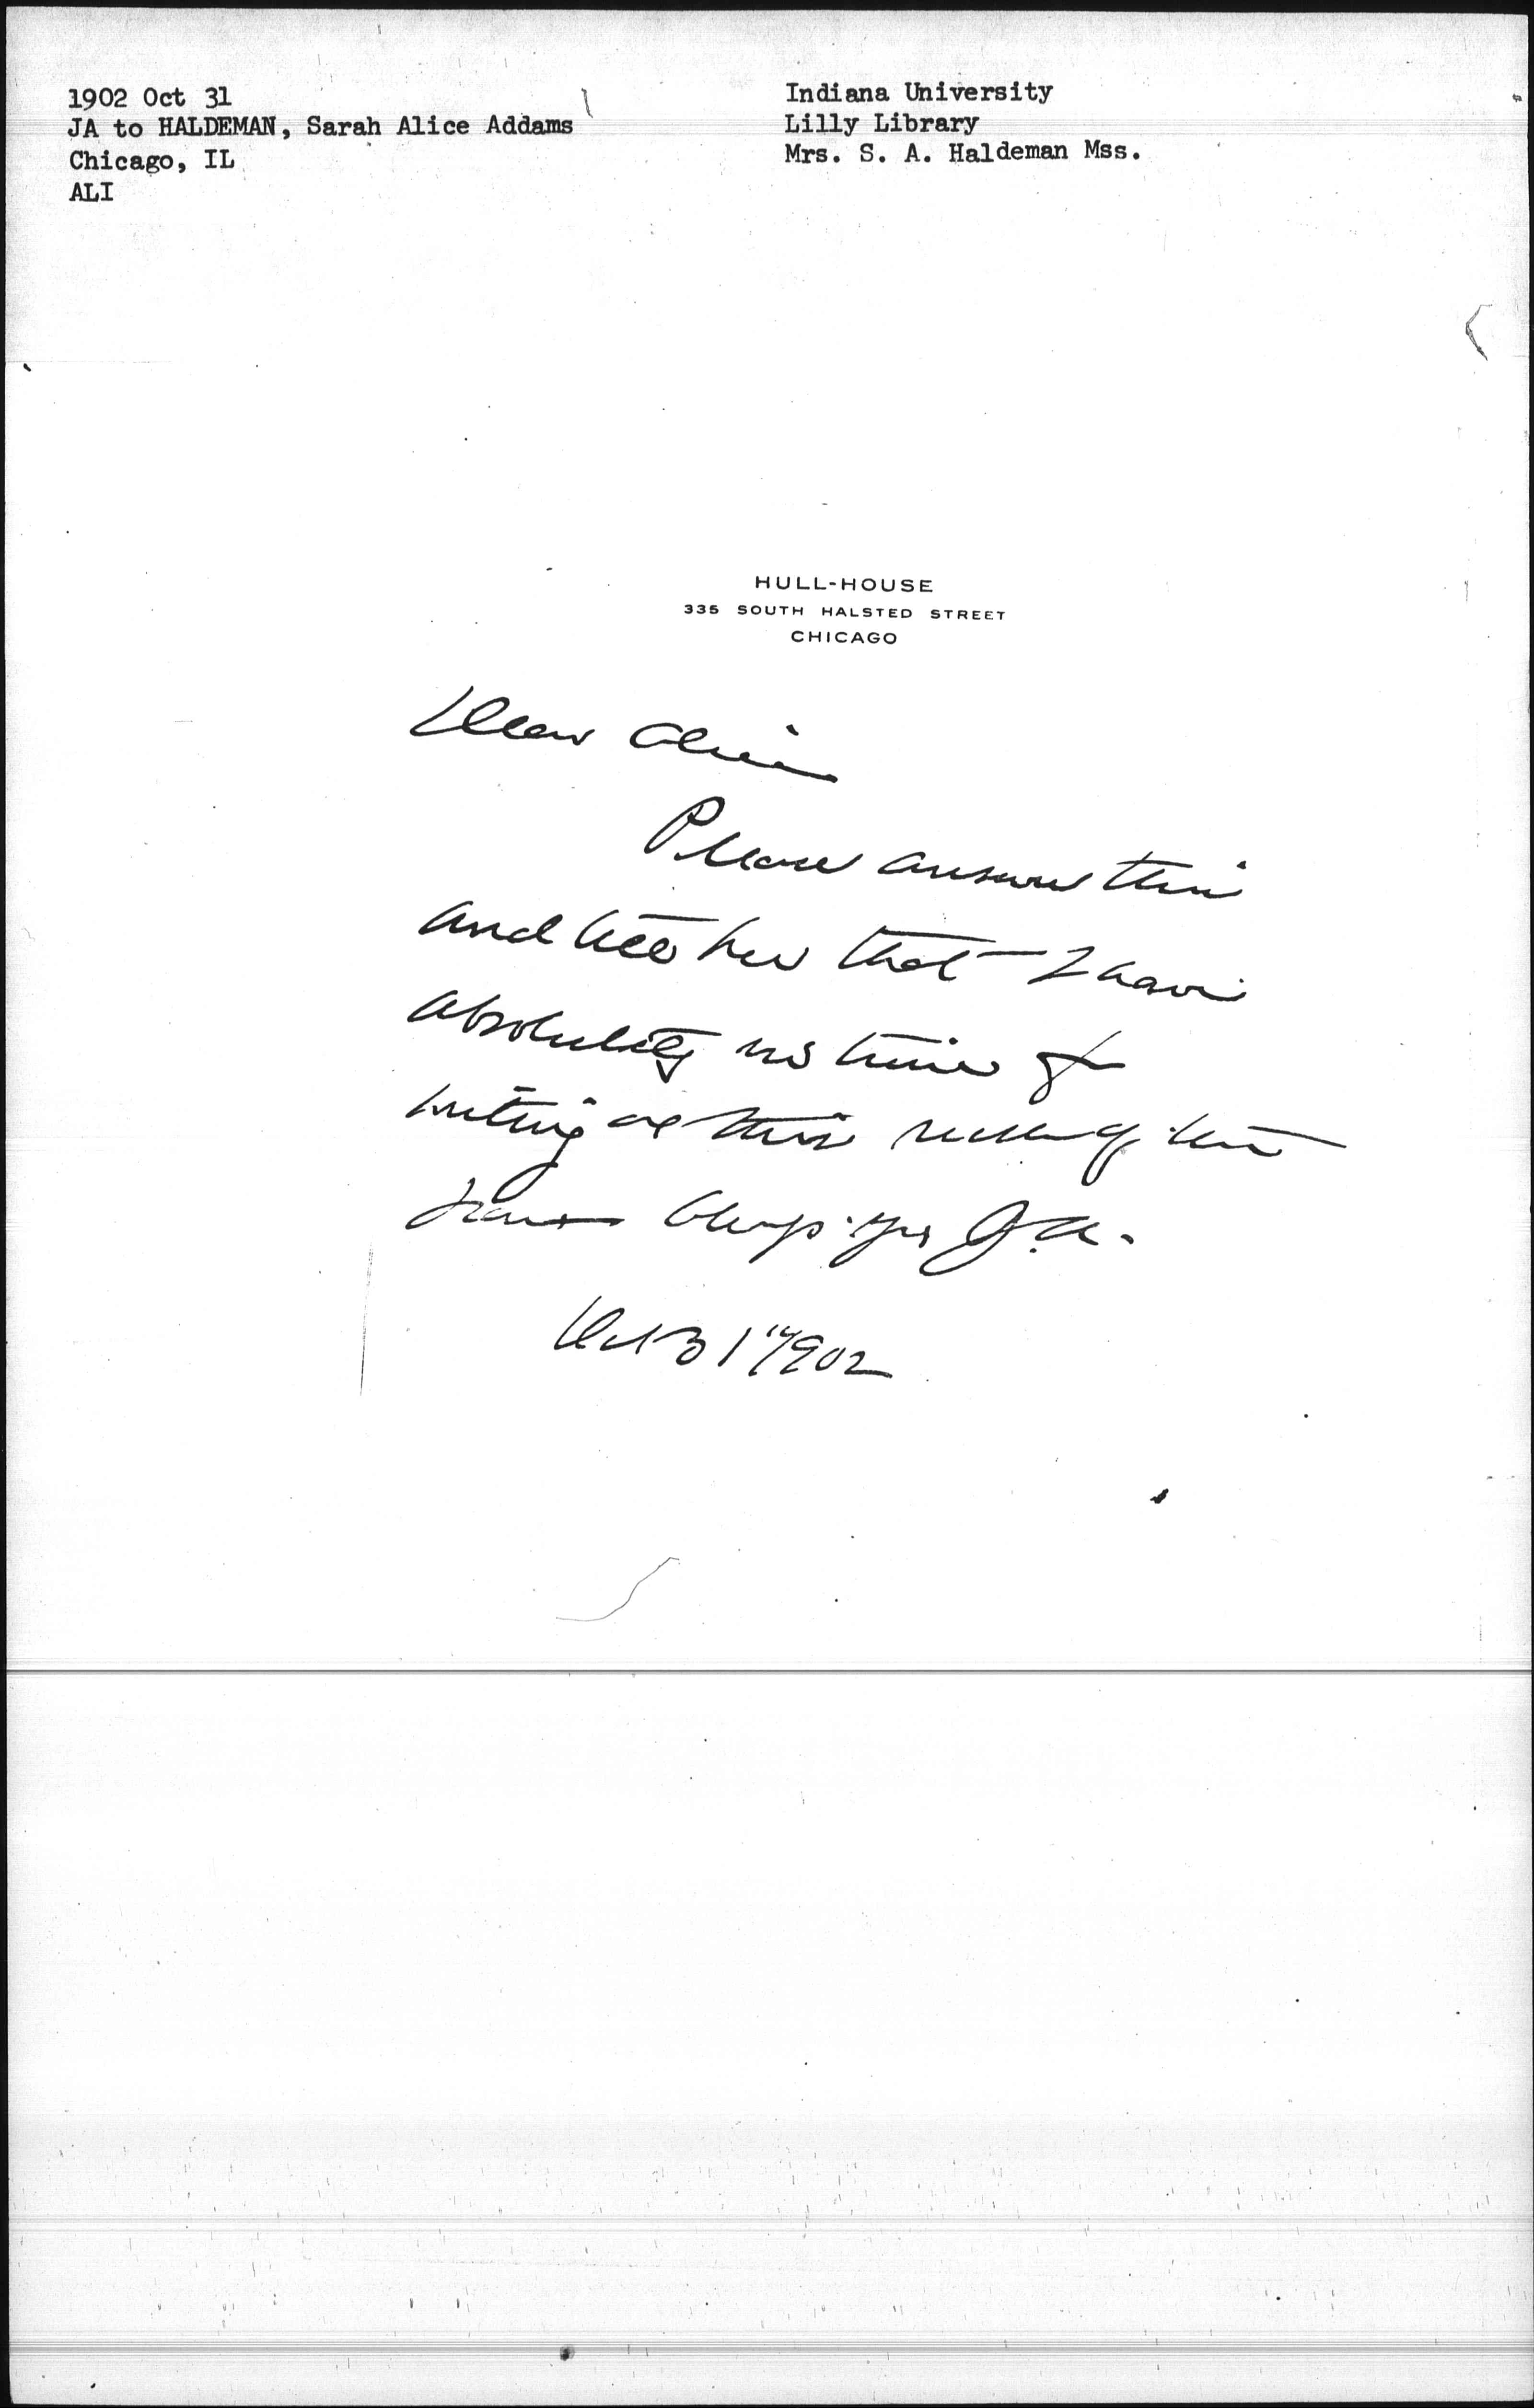 1902 Oct 31
JA to HALDEMAN, Sarah Alice Addams
Chicago, IL
ALI
Indiana University
Lilly Library
Mrs. S. A. Haldeman Mss.
HULL-HOUSE
335 SOUTH HALSTED STREET
CHICAGO
Dear Alice
Please answer this
and tell her that I have
absolutely no time for
writing of this
Always yrs J.A.
Oct 31" 1902